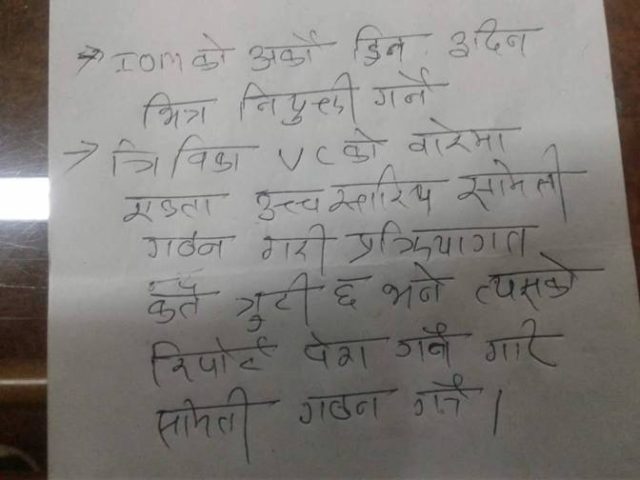 → IOM को अर्को डिन ३ दिन
भित्र नियुक्ती गर्ने
→ त्रि विका VC को वारेमा
एउता उच्च स्तरिय समिती
गठन गरी प्रक्रियागत
कतै त्रुटी छ भने त्यसको
रिपोर्ट पेश गर्ने गरि
समिती गठन गर्ने ।